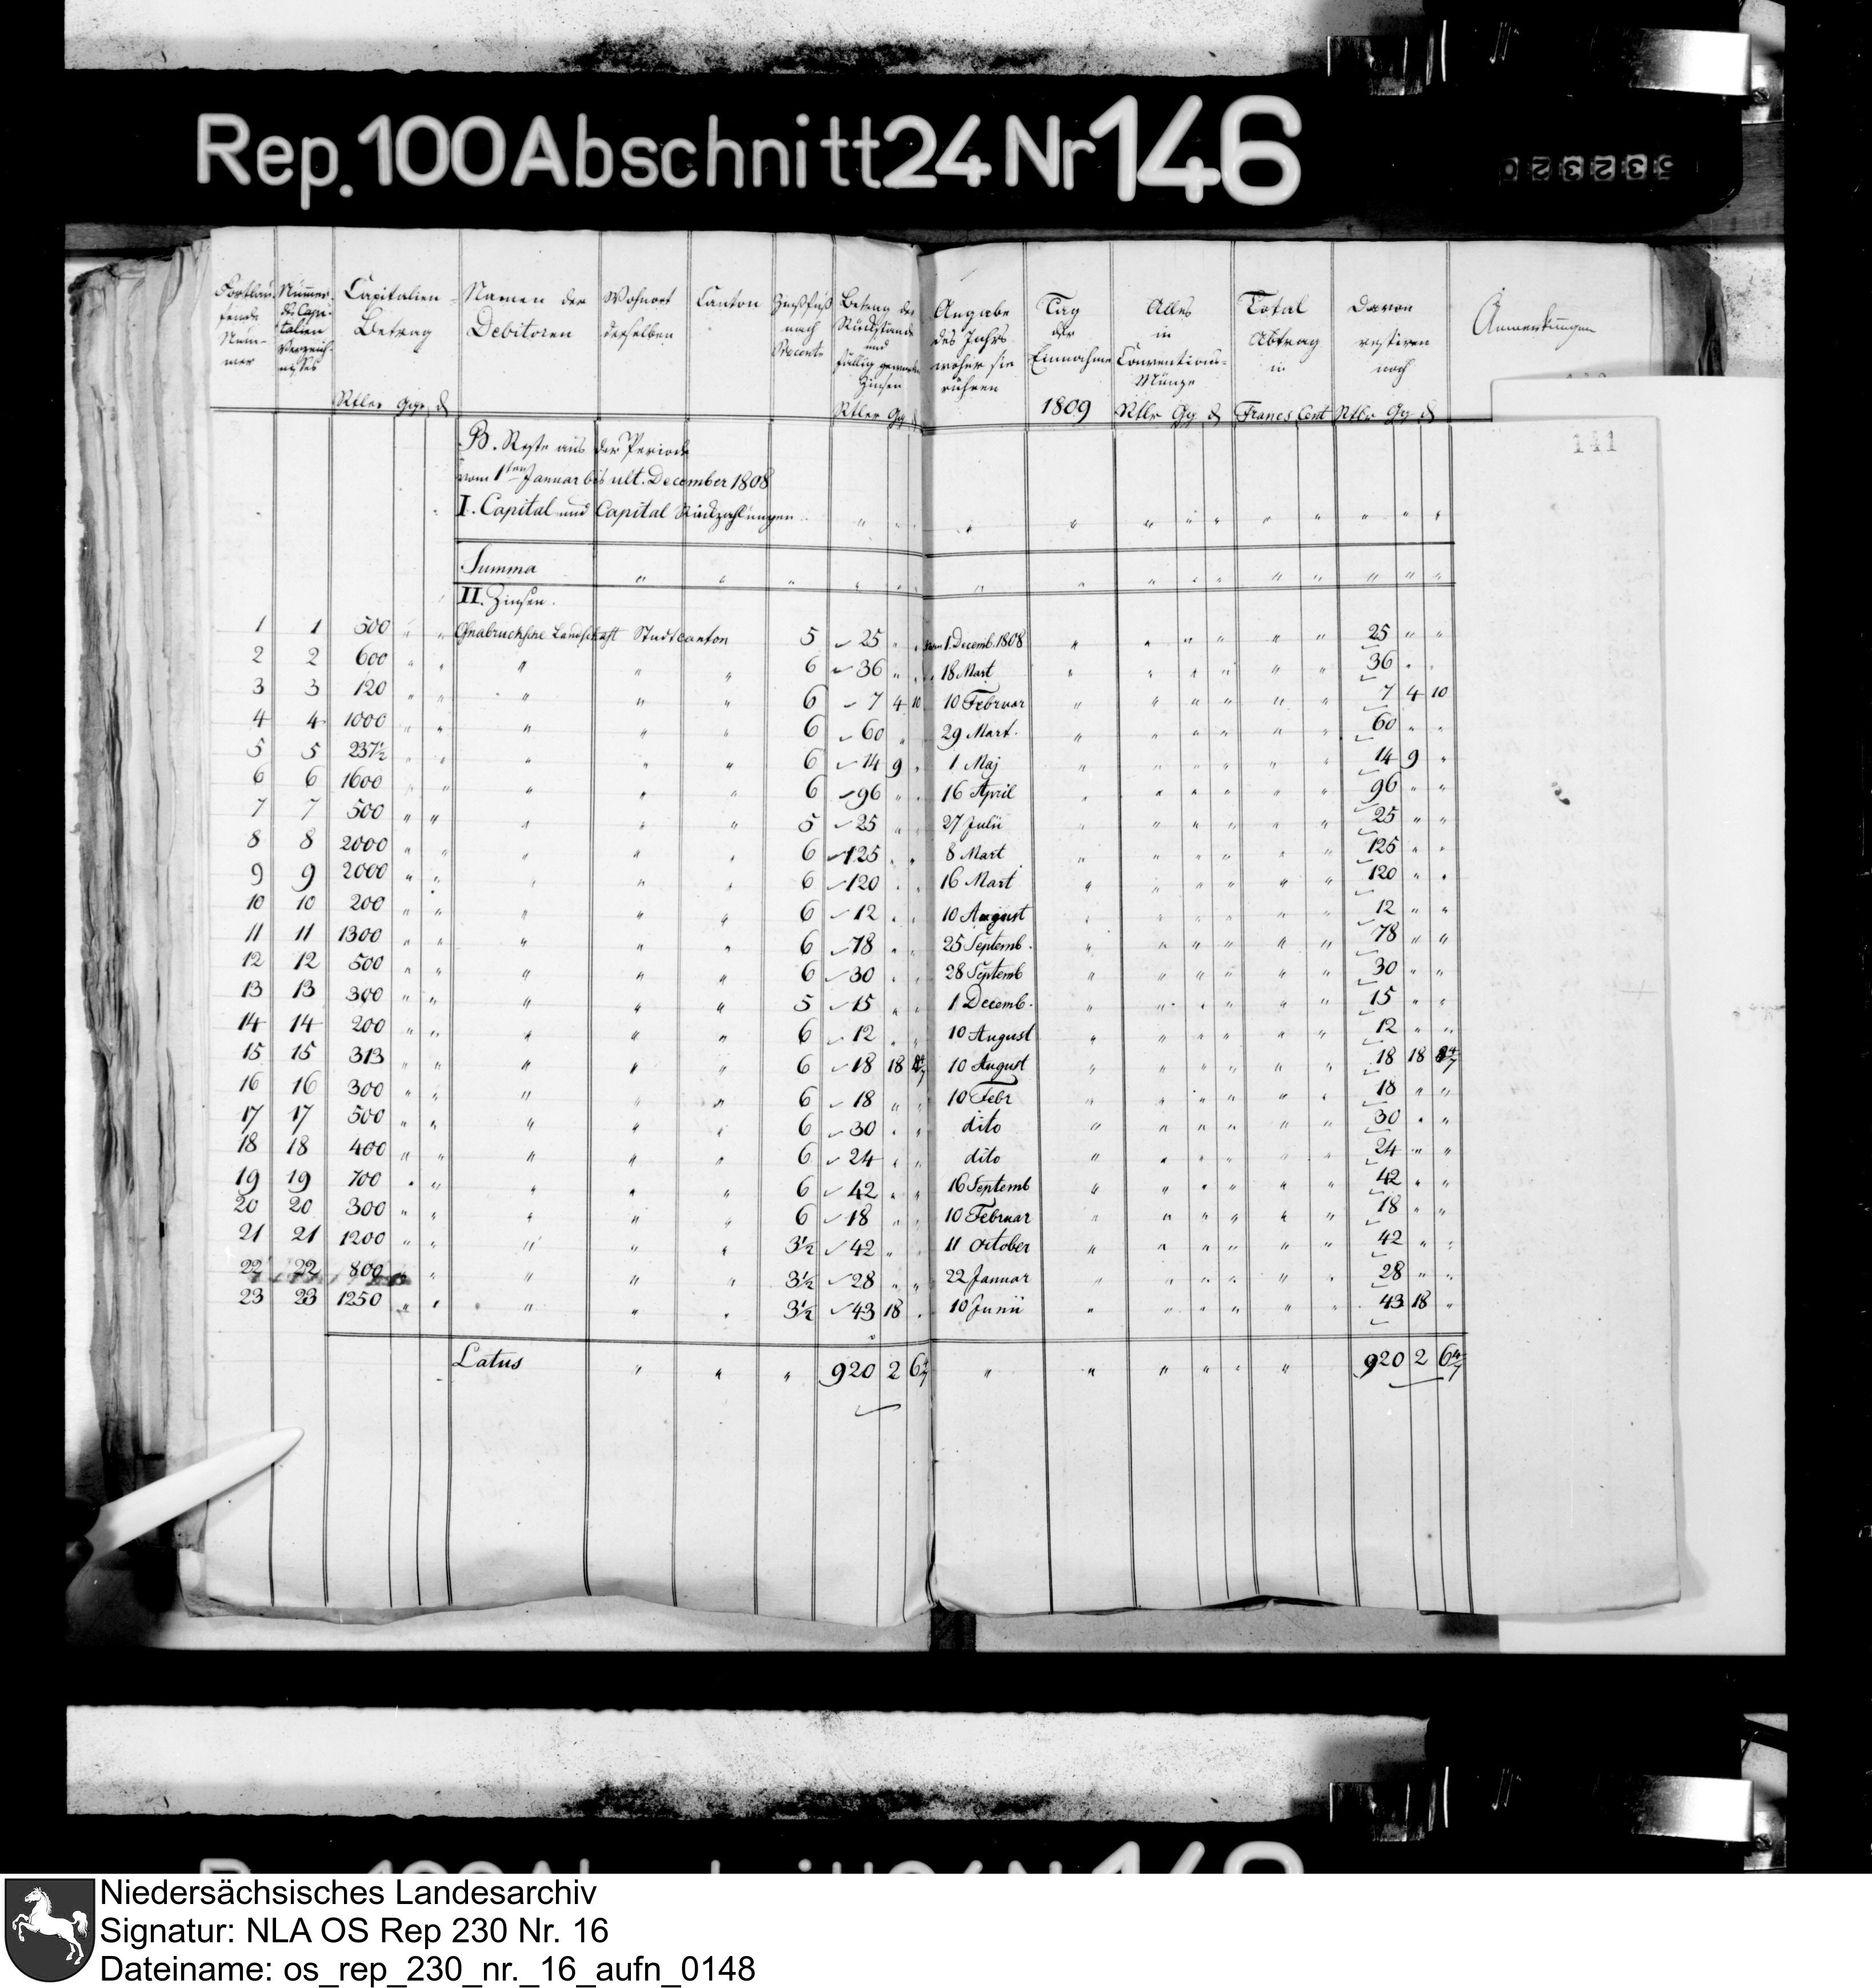 Rep. 100 Abschnitt 24 Nr 146
532320
Fortlau- fende Num- mer | Nummer des Capi- talien Verzeich- nißes | Capitalien- Betrag Rtler Ggr ₰ | Namen der Debitoren | Wohnort derselben | Canton | Zinsfuß nach Procente | Betrag der Rückstände und fällig gewordn Zinsen Rtler Gg ₰ | Angabe des Jahrs woher sie rühren | Tag der Einnahme 1809 | Alles in Conventions- Münze Rtlr Gg ₰ | Total Abtrag in Francs Cent | Davon restiren noch Rtlr Gg ₰ | Anmerkungen
141
B. Reste aus der Periode
vom 1ten Januar bis ult. December 1808
I. Capital und Capital Rückzahlungen " " " " " " " " " " " "
Summa " " " " " " " " " " " " " " "
II. Zinsen.
1 1 500 " " Osnabrucksche Landschaft Stadtcanton 5 25 " " vom 1 Decemb. 1808 " " " " " " 25 " "
2 2 600 " " " " " 6 36 " " 18 Mart " " " " " " 36 " "
3 3 120 " " " " " 6 7 4 10 10 Februar " " " " " " 7 4 10
4 4 1000 " " " " " 6 60 " " 29 Mart. " " " " " " 60 " "
5 5 237½ " " " " " 6 14 9 " 1 Maj " " " " " " 14 9 "
6 6 1600 " " " " " 6 96 " " 16 April " " " " " " 96 " "
7 7 500 " " " " " 5 25 " " 27 Julii " " " " " " 25 " "
8 8 2000 " " " " " 6 125 " " 8 Mart " " " " " " 125 " "
9 9 2000 " " " " " 6 120 " " 16 Mart " " " " " " 120 " "
10 10 200 " " " " " 6 12 " " 10 August " " " " " " 12 " "
11 11 1300 " " " " " 6 78 " " 25 Septemb. " " " " " " 78 " "
12 12 500 " " " " " 6 30 " " 28 Septemb " " " " " " 30 " "
13 13 300 " " " " " 5 15 " " 1 Decemb. " " " " " " 15 " "
14 14 200 " " " " " 6 12 " " 10 August " " " " " " 12 " "
15 15 313 " " " " " 6 18 18 10 August " " " " " " 18 18
16 16 300 " " " " " 6 18 " " 10 Febr " " " " " " 18 " "
17 17 500 " " " " " 6 30 " " dito " " " " " " 30 " "
18 18 400 " " " " " 6 24 " " dito " " " " " " 24 " "
19 19 700 " " " " " 6 42 " " 16 Septemb " " " " " " 42 " "
20 20 300 " " " " " 6 18 " " 10 Februar " " " " " " 18 " "
21 21 1200 " " " " " 3½ 42 " " 11 October " " " " " " 42 " "
22 22 800 " " " " " 3½ 28 " " 22 Januar " " " " " " 28 " "
23 23 1250 " " " " " 3½ 43 18 " 10 Junii " " " " " " 43 18 "
Latus " " " 920 2 6 4/7 " " " " " " 920 2 6 4/7
Niedersächsisches Landesarchiv
Signatur: NLA OS Rep 230 Nr. 16
Dateiname: os_rep_230_nr._16_aufn_0148